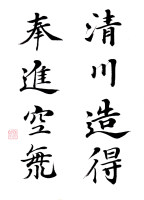 清川造得
奉進空飛